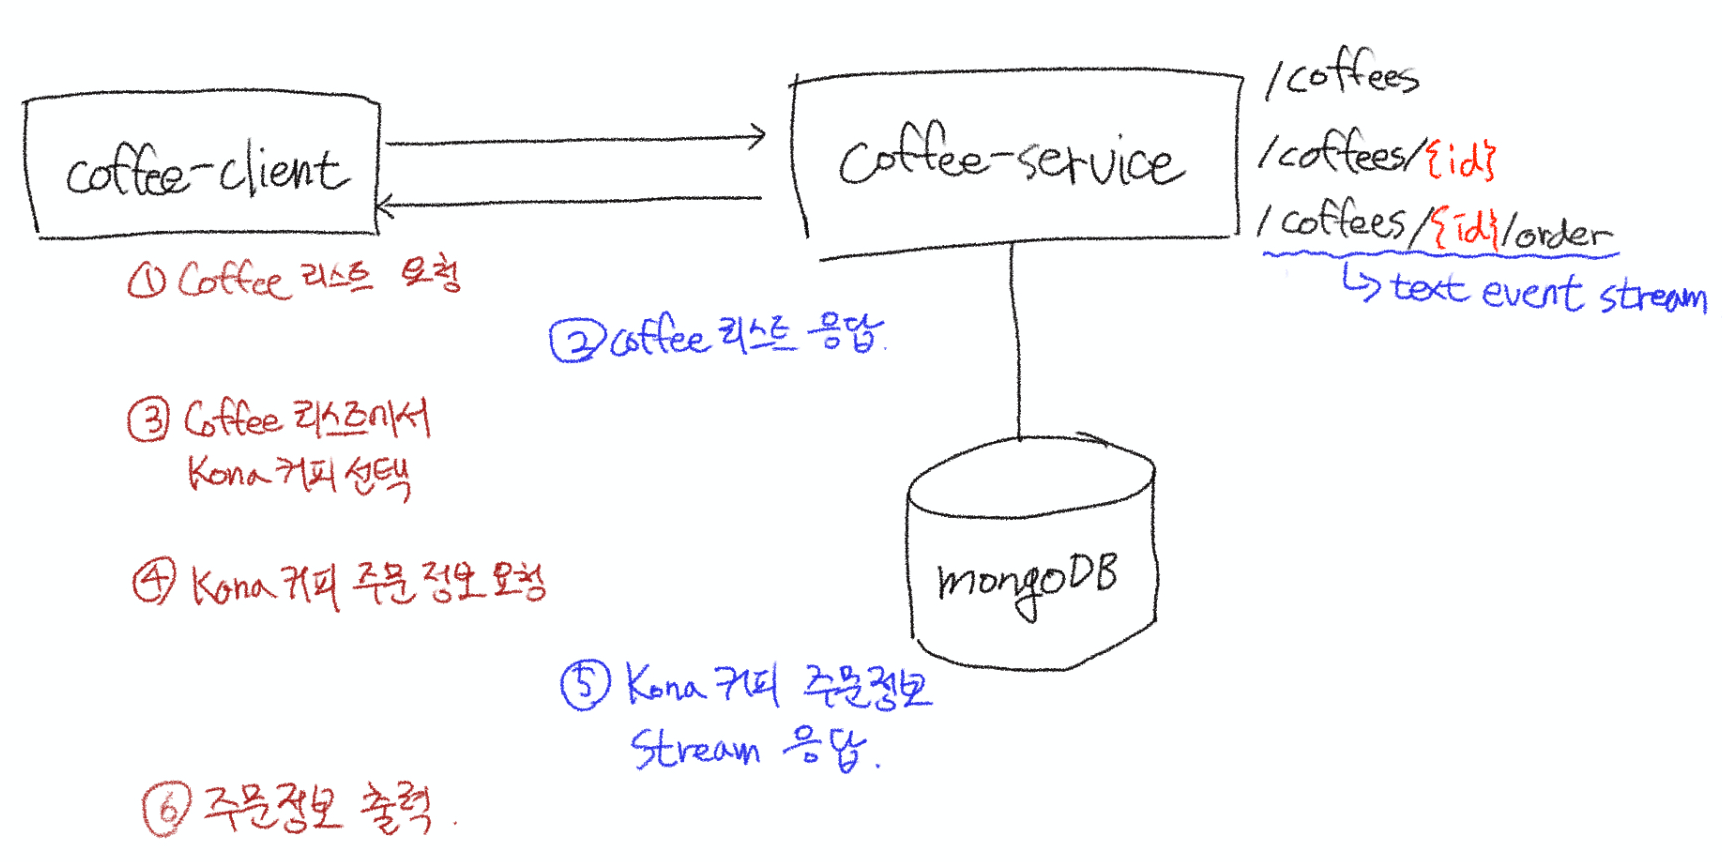 coffee-client
coffee-service
/coffees
/coffees/{id}
/coffees/{id}/order
↳ text event stream
① Coffee 리스트 요청
② coffee 리스트 응답.
③ Coffee 리스트에서
Kona 커피 선택
④ Kona 커피 주문 정보 요청
mongoDB
⑤ Kona 커피 주문정보
Stream 응답.
⑥ 주문정보 출력.